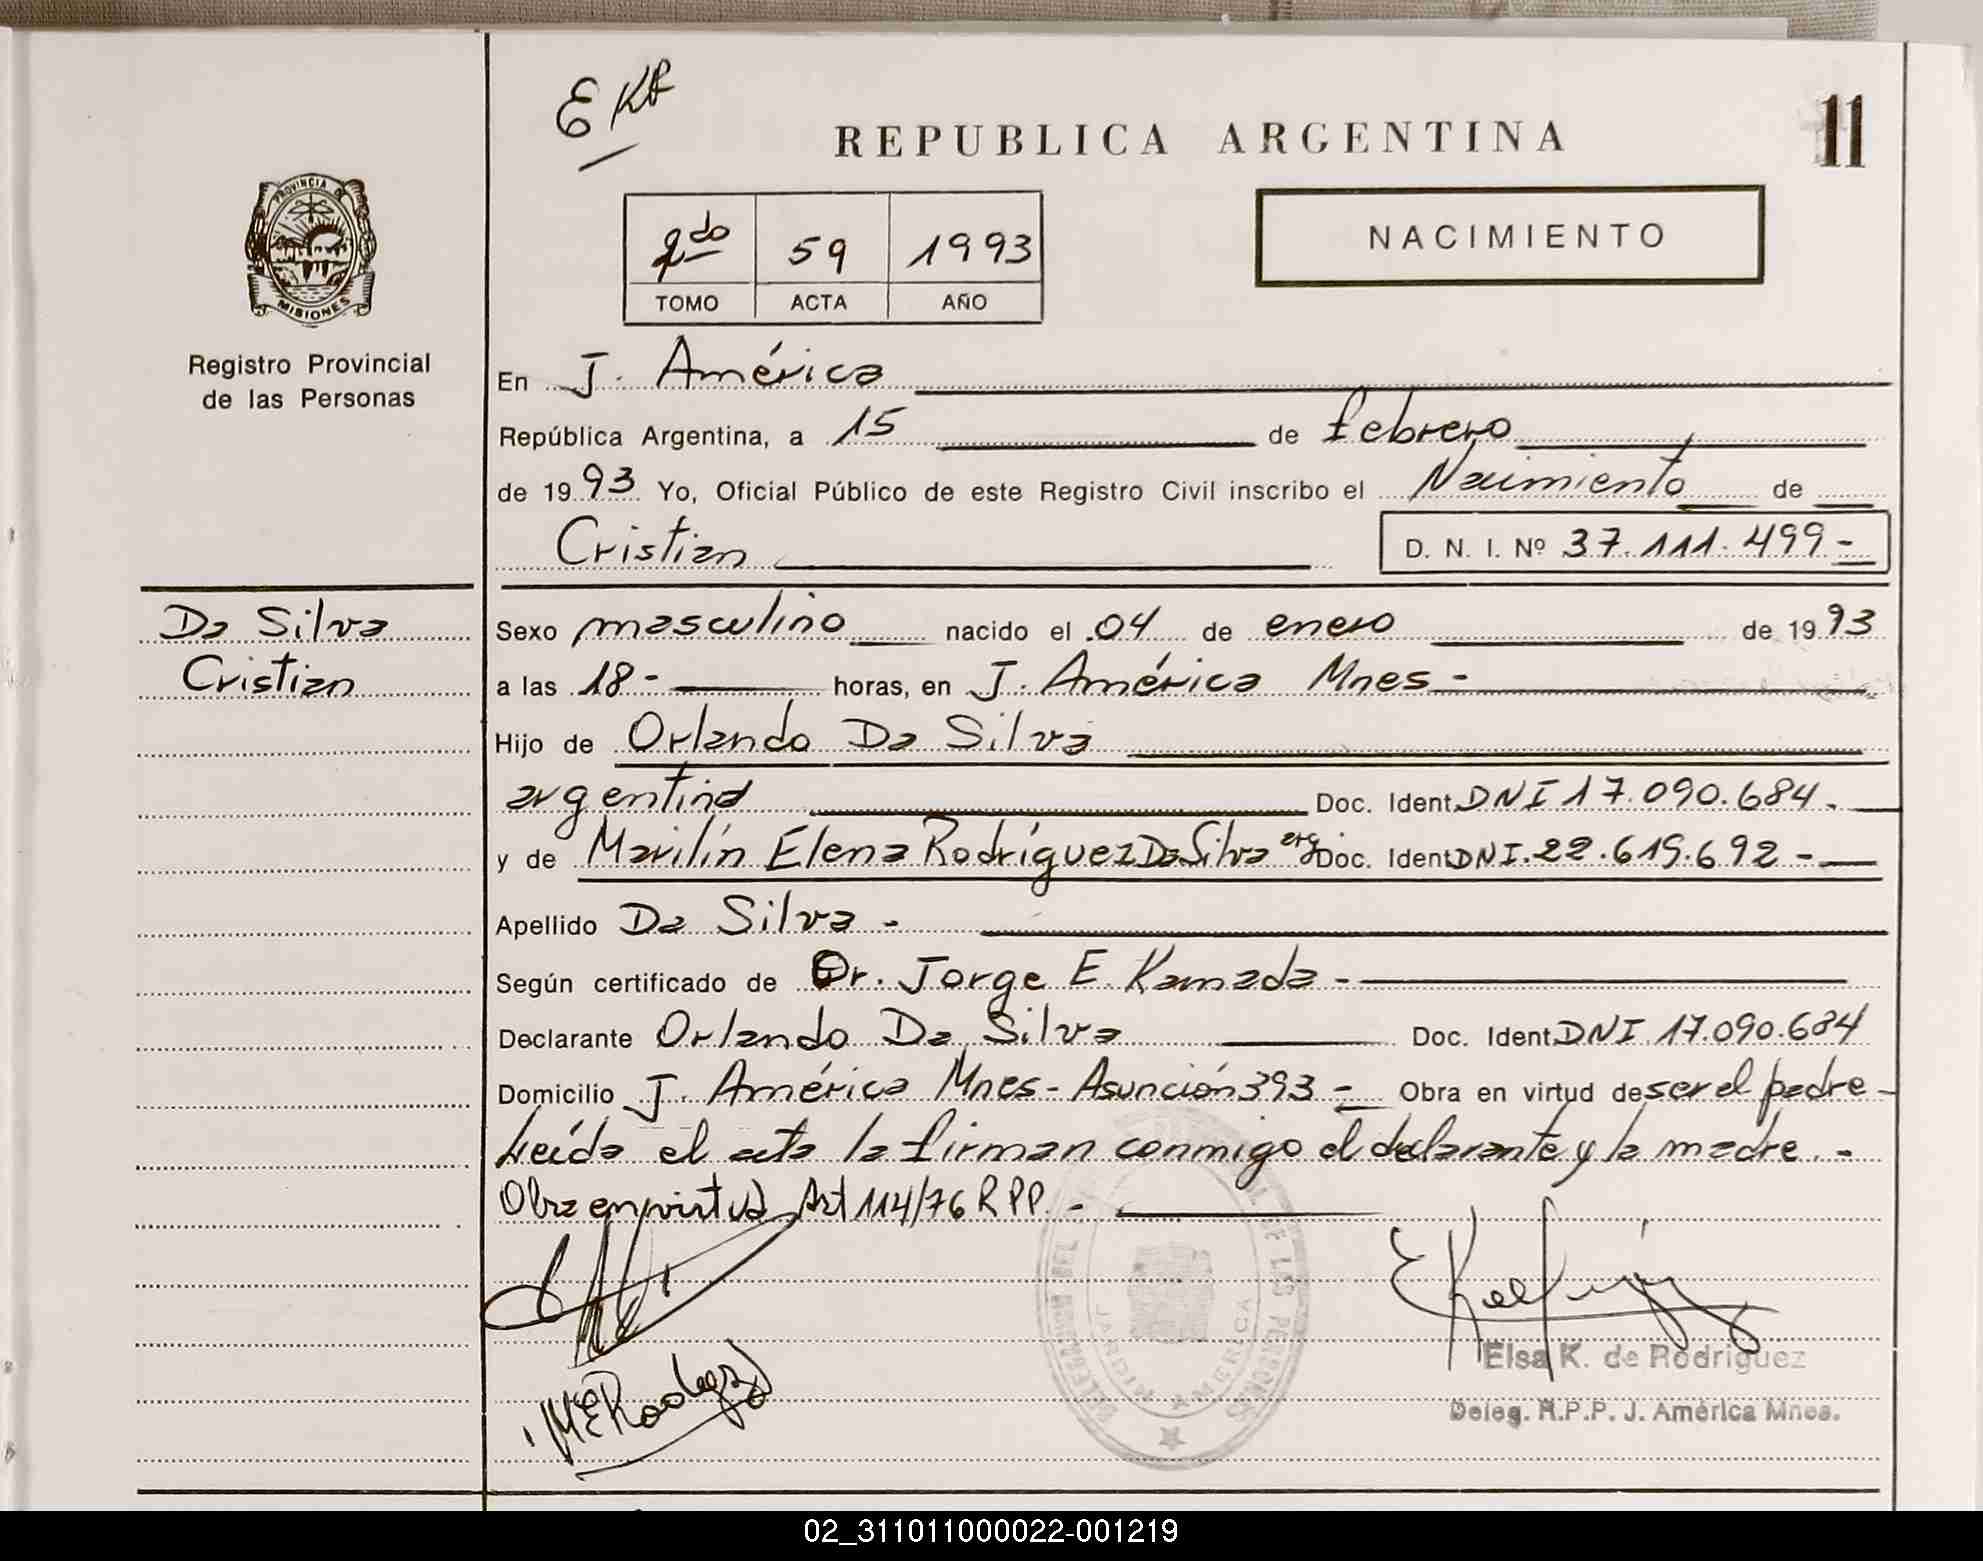 E KR
REPUBLICA ARGENTINA
11
PROVINCIA DE
MISIONES
Registro Provincial
de las Personas
2do 59 1993
TOMO ACTA AÑO
NACIMIENTO
En J. América
República Argentina, a 15 de febrero
de 1993 Yo, Oficial Público de este Registro Civil inscribo el Nacimiento de
Cristian D. N. I. Nº 37.111.499-
Da Silva
Cristian
Sexo masculino nacido el 04 de enero de 1993
a las 18- horas, en J. América Mnes-
Hijo de Orlando Da Silva
argentino Doc. Ident. DNI 17.090.684.
y de Marilín Elena Rodríguez Da Silva arg Doc. Ident. DNI. 22.619.692-
Apellido Da Silva-
Según certificado de Dr. Jorge E. Kamada-
Declarante Orlando Da Silva Doc. Ident. DNI 17.090.684
Domicilio J. América Mnes- Asunción 393- Obra en virtud de ser el padre-
Leída el acta la firman conmigo el declarante y la madre.-
Obra en virtud Art 114/76 R PP.-
MERodriguez
DE LAS PERSONAS
JARDIN AMERICA
Elsa K. de Rodriguez
Deleg. R.P.P. J. América Mnes.
02_311011000022-001219